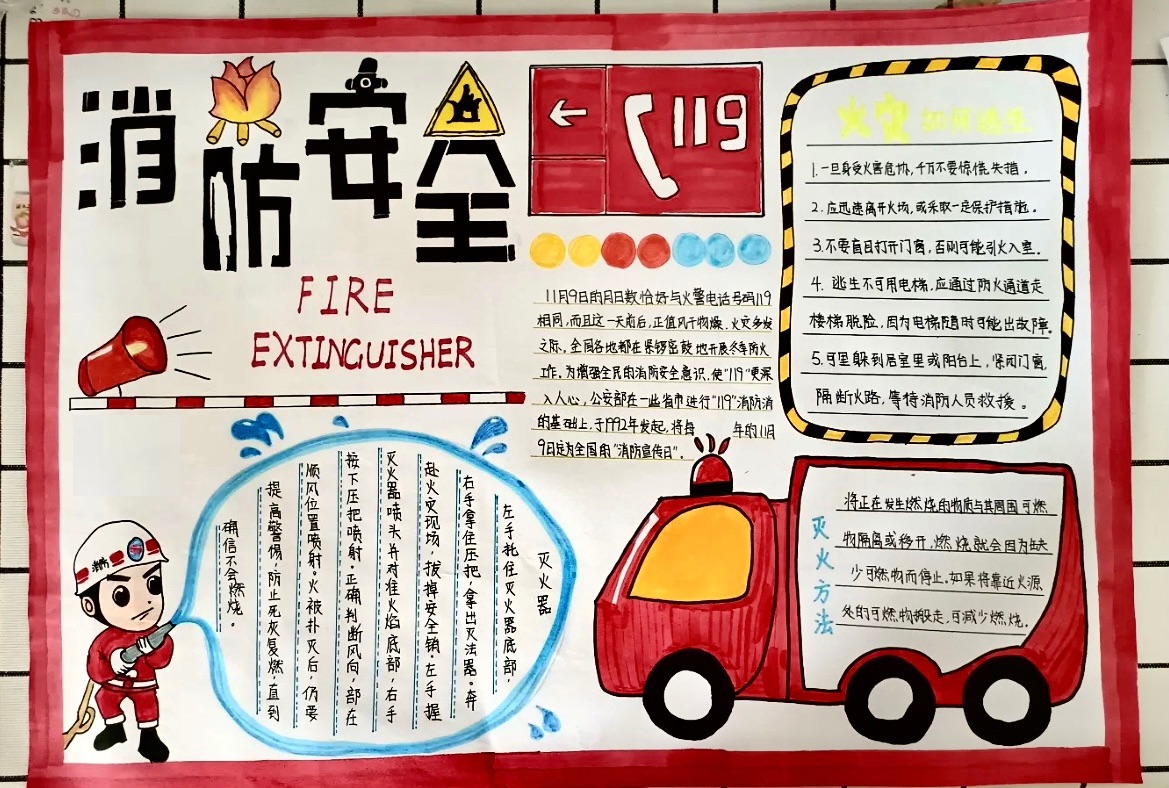 消防安全
FIRE
EXTINGUISHER
119
11月9日的月日数恰好与火警电话号码119
相同,而且这一天前后,正值风干物燥,火灾多发
之际,全国各地都在紧锣密鼓地开展冬季防火
工作。为增强全民的消防安全意识,使"119"更深
入人心,公安部在一些省市进行"119"消防消
的基础上,于1992年发起,将每 年的11月
9日定为全国的"消防宣传日"。
火灾如何逃生
1.一旦身受火害危协,千万不要惊慌失措。
2.应迅速离开火场,或采取一定保护措施。
3.不要盲目打开门窗,否则可能引火入室。
4.逃生不可用电梯,应通过防火通道走
楼梯脱险,因为电梯随时可能出故障。
5.可里躲到居室里或阳台上,紧闭门窗,
隔断火路,等待消防人员救援。
灭火器
左手托住灭火器底部,
右手拿住压把,拿出灭法器。奔
赴火灾现场,拔掉安全销,左手握
灭火器喷头并对准火焰底部,右手
按下压把喷射。正确判断风向,部在
顺风位置喷射。火被扑灭后,仍要
提高警惕,防止死灰复燃,直到
确信不会燃烧。
消防
灭火方法
将正在发生燃烧的物质与其周围可燃
物隔离或移开,燃烧就会因为缺
少可燃物而停止。如果将靠近火源
处的可燃物搬走,可减少燃烧。